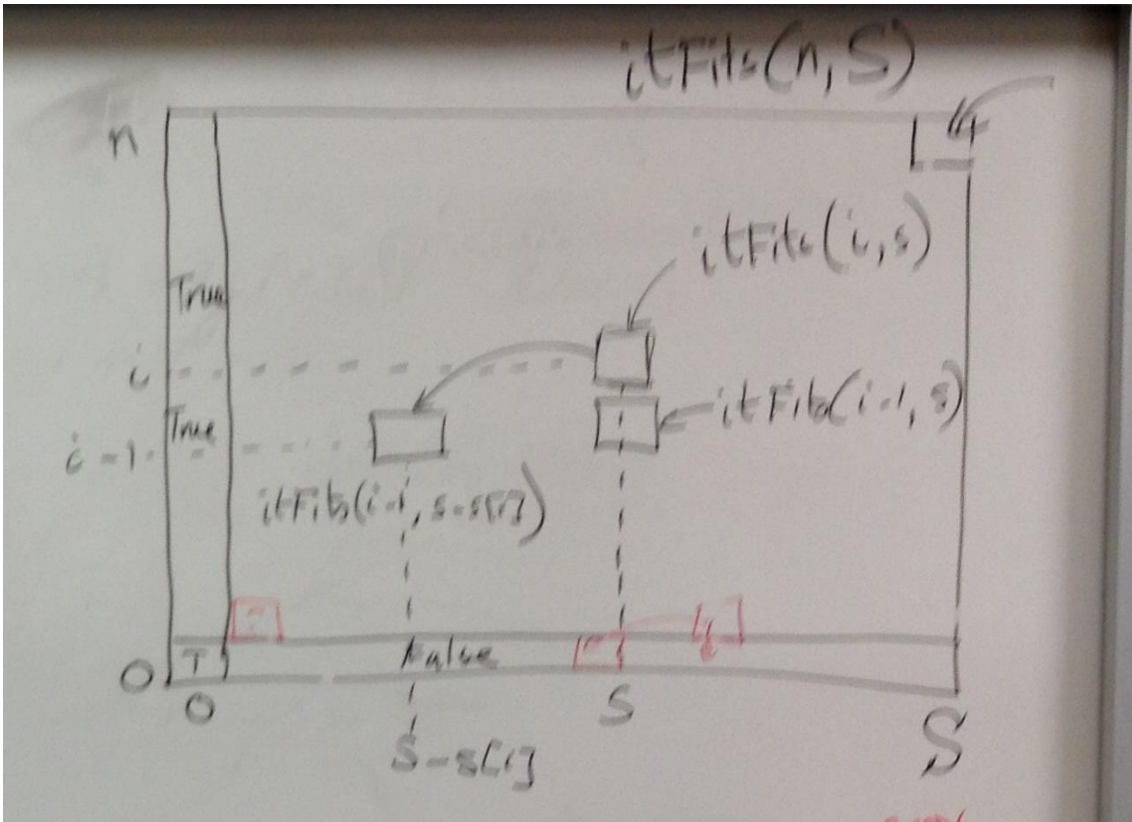 itFits(n, S)
n
itFits(i, s)
True
i
itFits(i-1, s)
True
i-1
itFits(i-1, s-s[i])
T
False
0
0
S
S
S-s[i]